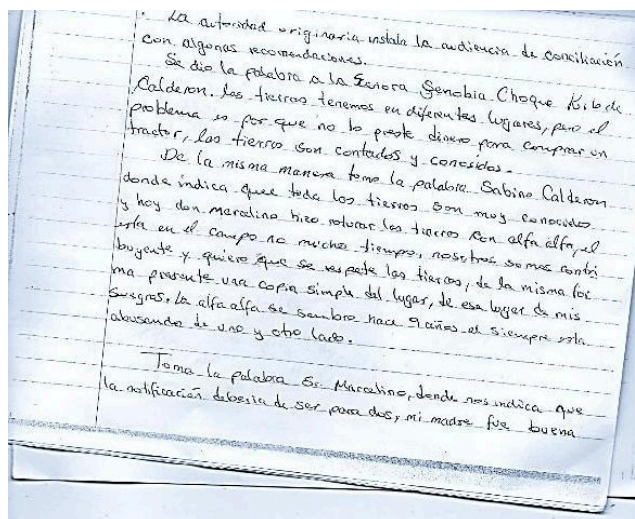 . La autoridad originaria instala la audiencia de conciliación
con algonas recomendaciones.
Se dio la palabra a la Senora Senobia Choque de
Calderon. las tierras tenemos en diferentes lugares, pero el
problema es por que no lo preste dinero para comprar un
tractor, las tierras son contados y conosidos.
De la misma manera tomo la palabra Sabino Calderon
donde indica que toda las tierras son muy conocidos
y hoy don Marcelino hizo roturar las tierras con alfa alfa, el
esta en el campo no mucho tiempo, nosotros somos contri
buyente y quiero que se respete las tierras, de la misma for
ma presente una copia simple del lugar, de ese lugar de mis
suegros. La alfa alfa se sembro hace 9 años el siempre esta
abusando de uno y otro lado.
Toma la palabra Sr. Marcelino, donde nos indica que
la notificación deberia de ser para dos, mi madre fue buena